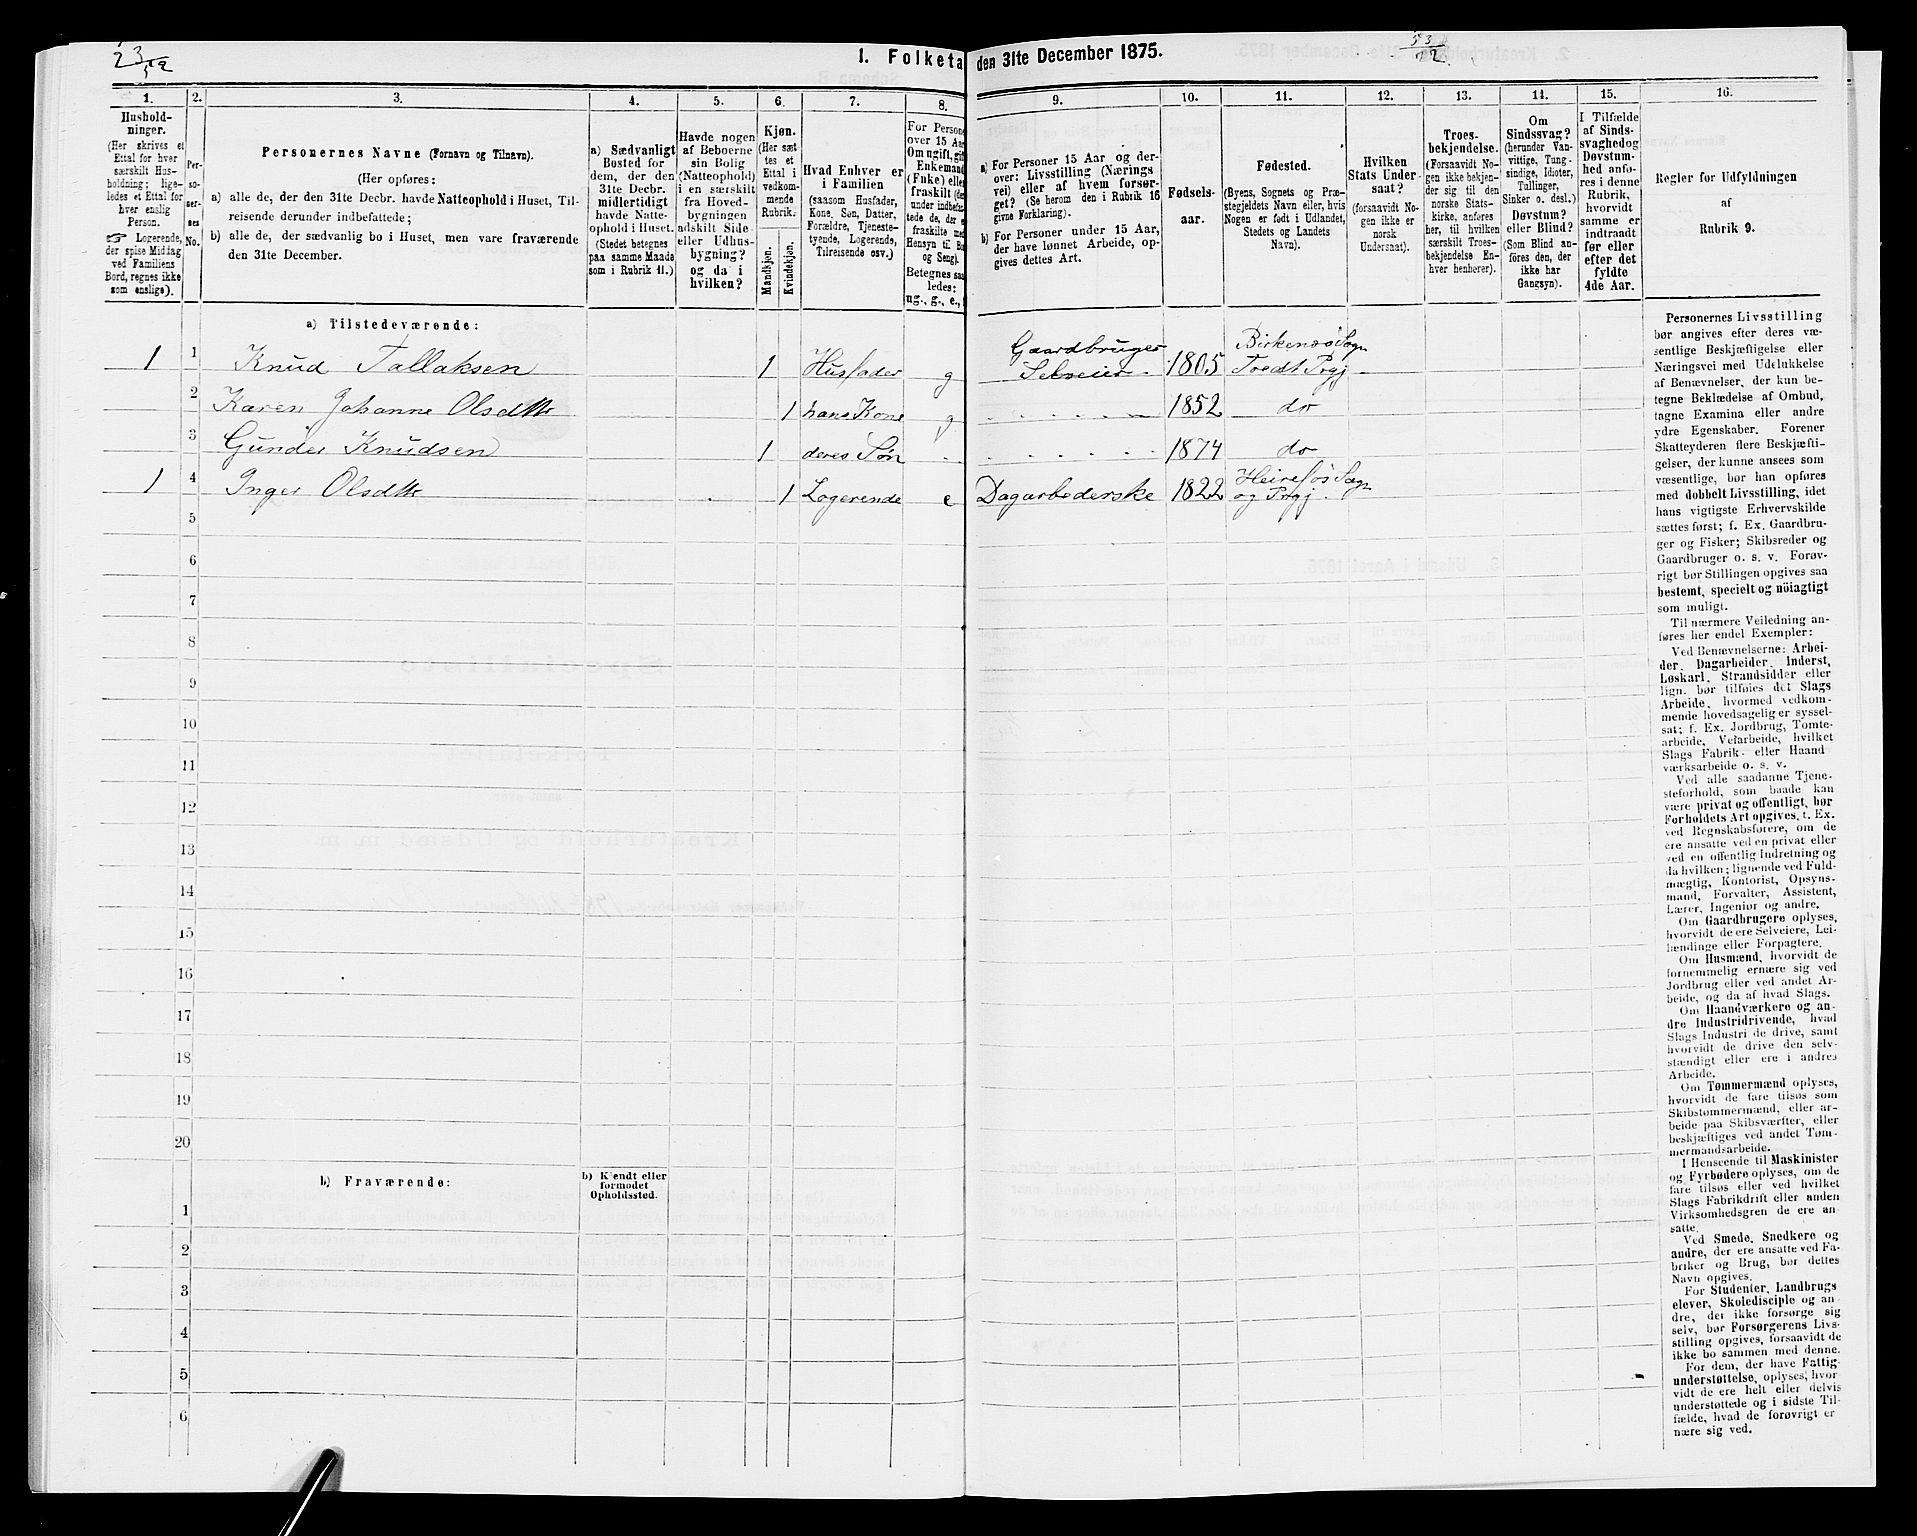 1. Folketæ
den 31te December 1875.
1.
2.
3.
4.
5.
6.
7.
8.
9.
10.
11.
12.
13.
14.
15.
16.
Hushold-
ninger.
(Her skrives et
Ettal for hver
særskilt Hus-
holdning; lige-
ledes et Ettal for
hver enslig
Person.
☞ Logerende,
der spise Middag
ved Familiens
Bord, regnes ikke
som enslige).
Per-
so-
ner-
nes
No.
Personernes Navne (Fornavn og Tilnavn).
(Her opføres:
a) alle de, der den 31te Decbr. havde Natteophold i Huset, Til-
reisende derunder indbefattede;
b) alle de, der sædvanlig bo i Huset, men vare fraværende
den 31te December.
a) Sædvanligt
Bosted for
dem, der den
31te Decbr.
midlertidigt
havde Natte-
ophold i Huset.
(Stedet betegnes
paa samme Maade
som i Rubrik 11.)
Havde nogen
af Beboerne
sin Bolig
(Natteophold)
i en særskilt
fra Hoved-
bygningen
adskilt Side-
eller Udhus-
bygning?
og da i
hvilken?
Kjøn.
(Her sæt
tes et
Ettal i
vedkom-
mende
Rubrik.
Mandkjøn.
Kvindekjøn.
Hvad Enhver er
i Familien
(saasom Husfader,
Kone, Søn, Datter,
Forældre, Tjeneste-
tyende, Logerende,
Tilreisende osv.)
For Persone
over 15 Aar
Om ugift, gift
Enkemand
(Enke) elle
fraskilt (de
under indbefat
tede de, der e
fraskilte med
Hensyn til Bo
og Seng).
Betegnes saa
ledes:
ug., g., e.,
a) For Personer 15 Aar og der-
over: Livsstilling (Nærings
vei) eller af hvem forsør-
get? (Se herom den i Rubrik 16
givne Forklaring).
b) For Personer under 15 Aar,
der have lønnet Arbeide, op-
gives dettes Art.
Fødsels-
aar.
Fødested.
(Byens, Sognets og Præ-
stegjeldets Navn eller, hvis
Nogen er født i Udlandet,
Stedets og Landets
Navn).
Hvilken
Stats Under-
saat?
(forsaavidt No-
gen ikke er
norsk
Undersaat).
Troes-
bekjendelse.
(Forsaavidt No-
gen ikke bekjen-
der sig til den
norske Stats-
kirke, anføres
her, til hvilken
særskilt Troes-
bekjendelse En-
hver henhører).
Om
Sindssvag?
(herunder Van-
vittige, Tung-
sindige, Idioter,
Tullinger,
Sinker o. desl.)
Døvstum?
eller Blind?
(Som Blind an-
føres den, der
ikke har
Gangsyn).
I Tilfælde
af Sinds-
svaghed og
Døvstum-
hed anfø-
res i denne
Rubrik,
hvorvidt
samme er
indtraadt
før eller
efter det
fyldte
4de Aar.
Regler for Udfyldningen
af
Rubrik 9.
a) Tilstedeværende:
1 1 Knud Tallaksen 1 Husfader g Gaardbruger Selveier 1805 Birkenæs Sogn Tvedt Prgj
2 Karen Johanne Olsdttr 1 hans Kone g 1852 do
3 Gunder Knudsen 1 deres Søn 1874 do
1 4 Inger Olsdttr 1 Logerende e Dagarbederske 1822 Heirefos Sogn og Prgj.
5
6
7
8
9
10
11
12
13
14
15
16
17
18
19
20
b) Fraværende:
b) Kjendt eller
formodet
Opholdssted.
1
2
3
4
5
6
Personernes Livsstilling
bør angives efter deres væ-
sentlige Beskjæftigelse eller
Næringsvei med Udelukkelse
af Benævnelser, der kun be-
tegne Beklædelse af Ombud,
tagne Examina eller andre
ydre Egenskaber. Forener
Skatteyderen flere Beskjæfti-
gelser, der kunne ansees som
væsentlige, bør han opføres
med dobbelt Livsstilling, idet
hans vigtigste Erhvervskilde
sættes først; f. Ex. Gaardbru-
ger og Fisker; Skibsreder og
Gaardbruger o. s. v. Forøv-
rigt bør Stillingen opgives saa
bestemt, specielt og nöiagtigt
som muligt.
Til nærmere Veiledning an-
føres her endel Exempler:
Ved Benævnelserne: Arbei-
der, Dagarbeider, Inderst,
Løskarl, Strandsidder eller
lign. bør tilføies det Slags
Arbeide, hvormed vedkom-
mende hovedsagelig er syssel-
sat; f. Ex. Jordbrug, Tomte-
arbeide, Veiarbeide, hvilket
Slags Fabrik- eller Haand
værksarbeide o. s. v.
Ved alle saadanne Tjene-
steforhold, som baade kan
være privat og offentligt, bør
Forholdets Art opgives, t. Ex.
ved Regnskabsførere, om de
ere ansatte ved en privat eller
ved en offentlig Indretning og
da hvilken; lignende ved Fuld-
mægtig, Kontorist, Opsyns-
mand, Forvalter, Assistent,
Lærer, Ingeniør og andre.
Om Gaardbrugere oplyses,
hvorvidt de ere Selveiere, Lei-
lændinge eller Forpagtere.
Om Husmænd, hvorvidt de
fornemmelig ernære sig ved
Jordbrug eller ved andet Ar-
beide, og da af hvad Slags.
Om Haandværkere og an-
dre Industridrivende, hvad
Slags Industri de drive, samt
hvorvidt de drive den selv-
stændigt eller ere i andres
Arbeide.
Om Tømmermænd oplyses,
hvorvidt de fare tilsøs som
Skibstømmermænd, eller ar-
beide paa Skibsværfter, eller
beskjæftiges ved andet Tøm-
mermandsarbeide.
I Henseende til Maskinister
og Fyrbødere oplyses, om de
fare tilsøs eller ved hvilket
Slags Fabrikdrift eller anden
Virksomhedsgren de ere an-
satte.
Ved Smede, Snedkere og
andre, der ere ansatte ved Fa-
briker og Brug, bør dettes
Navn opgives.
For Studenter, Landbrugs
elever, Skoledisciple og an-
dre, der ikke forsørge sig
selv, bør Forsørgerens Livs-
stilling opgives, forsaavidt de
ikke bo sammen med denne.
For dem, der have Fattig-
understøttelse, oplyses, hvor-
vidt de ere helt eller delvis
understøttede og i sidste Til-
fælde, hvad de forøvrigt er
nære sig ved.